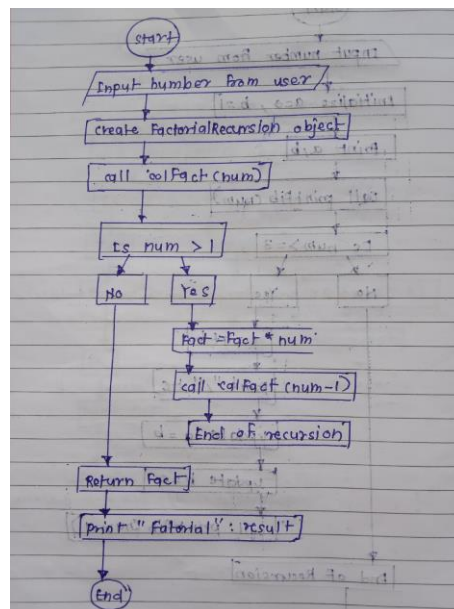 start
Input number from user
create FactorialRecursion object
call calFact(num)
Is num > 1
No
Yes
Fact = Fact * num
call calFact (num-1)
End of recursion
Return Fact;
print "Fatorial" : result
End